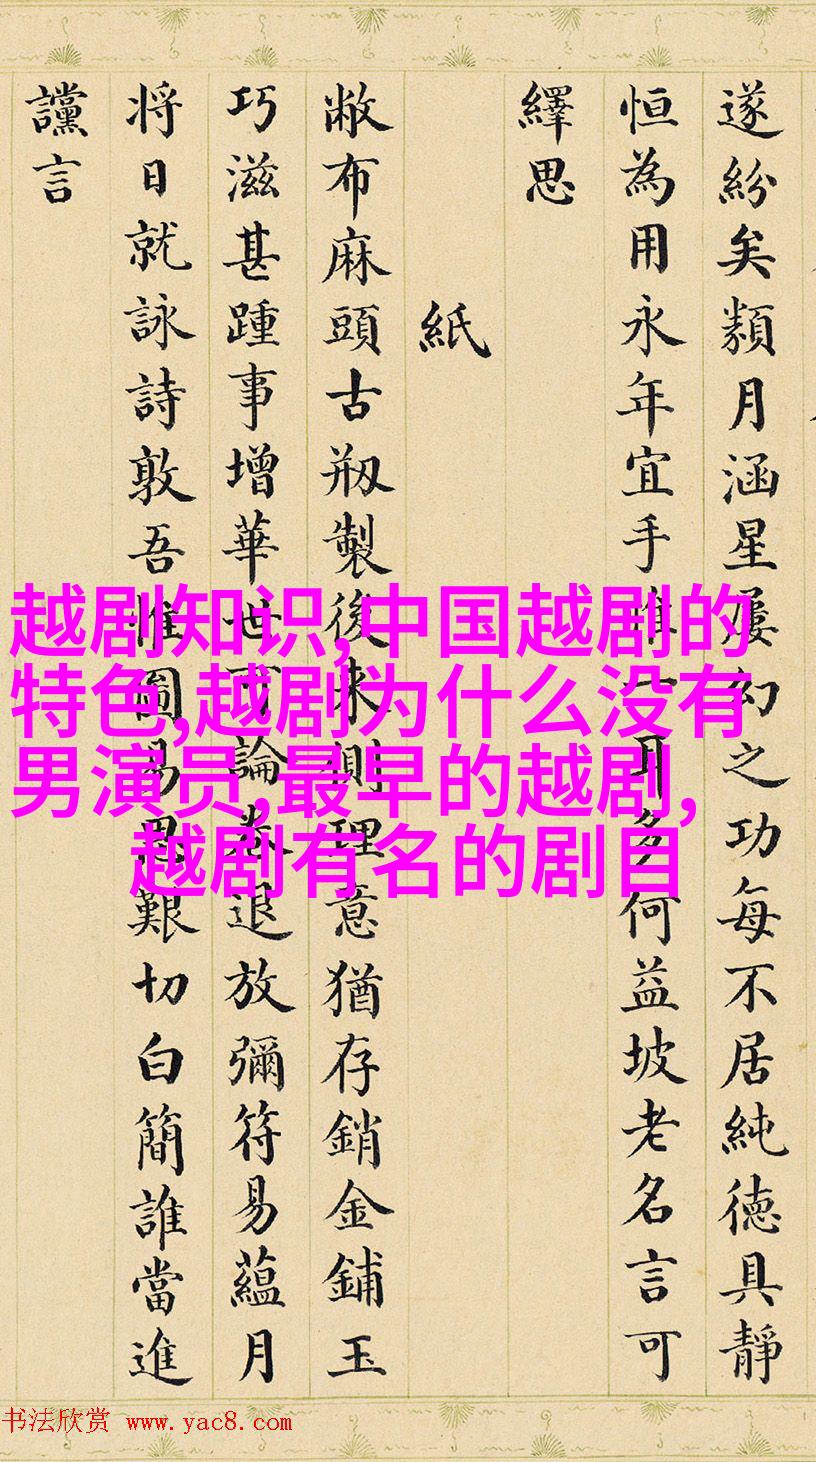 遂紛矣類月涵星屢幻之功每不居純德具靜
恒為用永年宜手唯一耳多何益坡老名言可
繹思
紙
敝布麻頭古剏製後來側理意猶存銷金鋪玉
巧滋甚踵事增華世可論卷退放彌符易蘊月
将日就詠詩敦吾惟圖易思艱切白簡誰當進
讜言
越剧知识,中国越剧的
特色,越剧为什么没有
男演员,最早的越剧,
越剧有名的剧目
书法欣赏 www.yac8.com